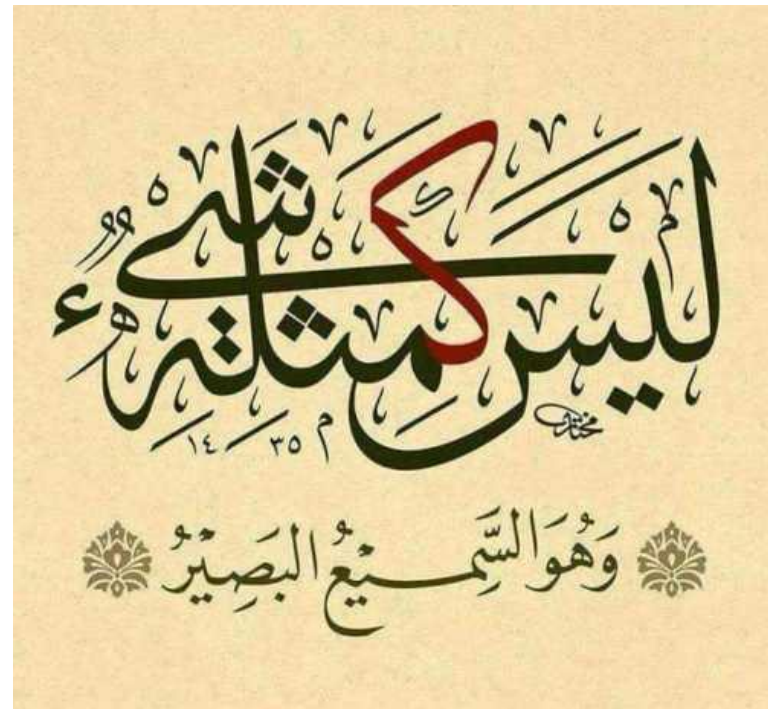 لَيْسَ كَمِثْلِهِ شَيْءٌ
١٤٣٥
وَهُوَ السَّمِيْعُ البَصِيْرُ